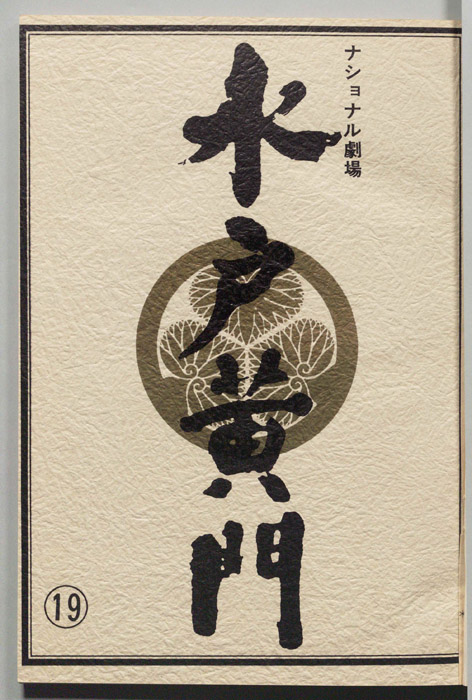 ナショナル劇場
水戸黄門
⑲